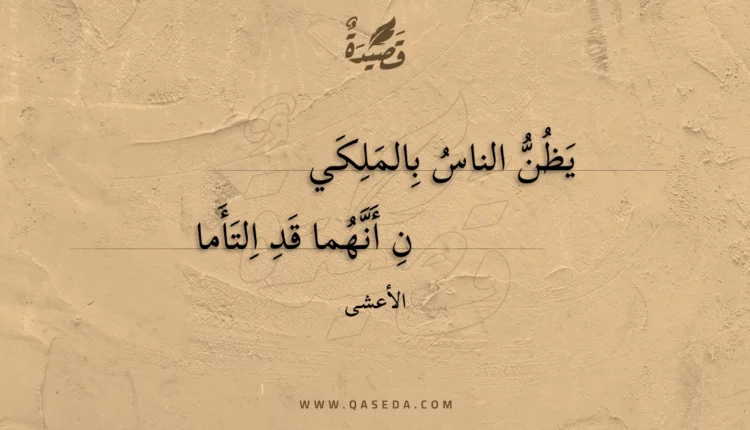 قَصِيدَةٌ
يَظُنُّ الناسُ بِالمَلِكَي
نِ أَنَّهُما قَدِ اِلتَأَما
الأعشى
WWW.QASEDA.COM